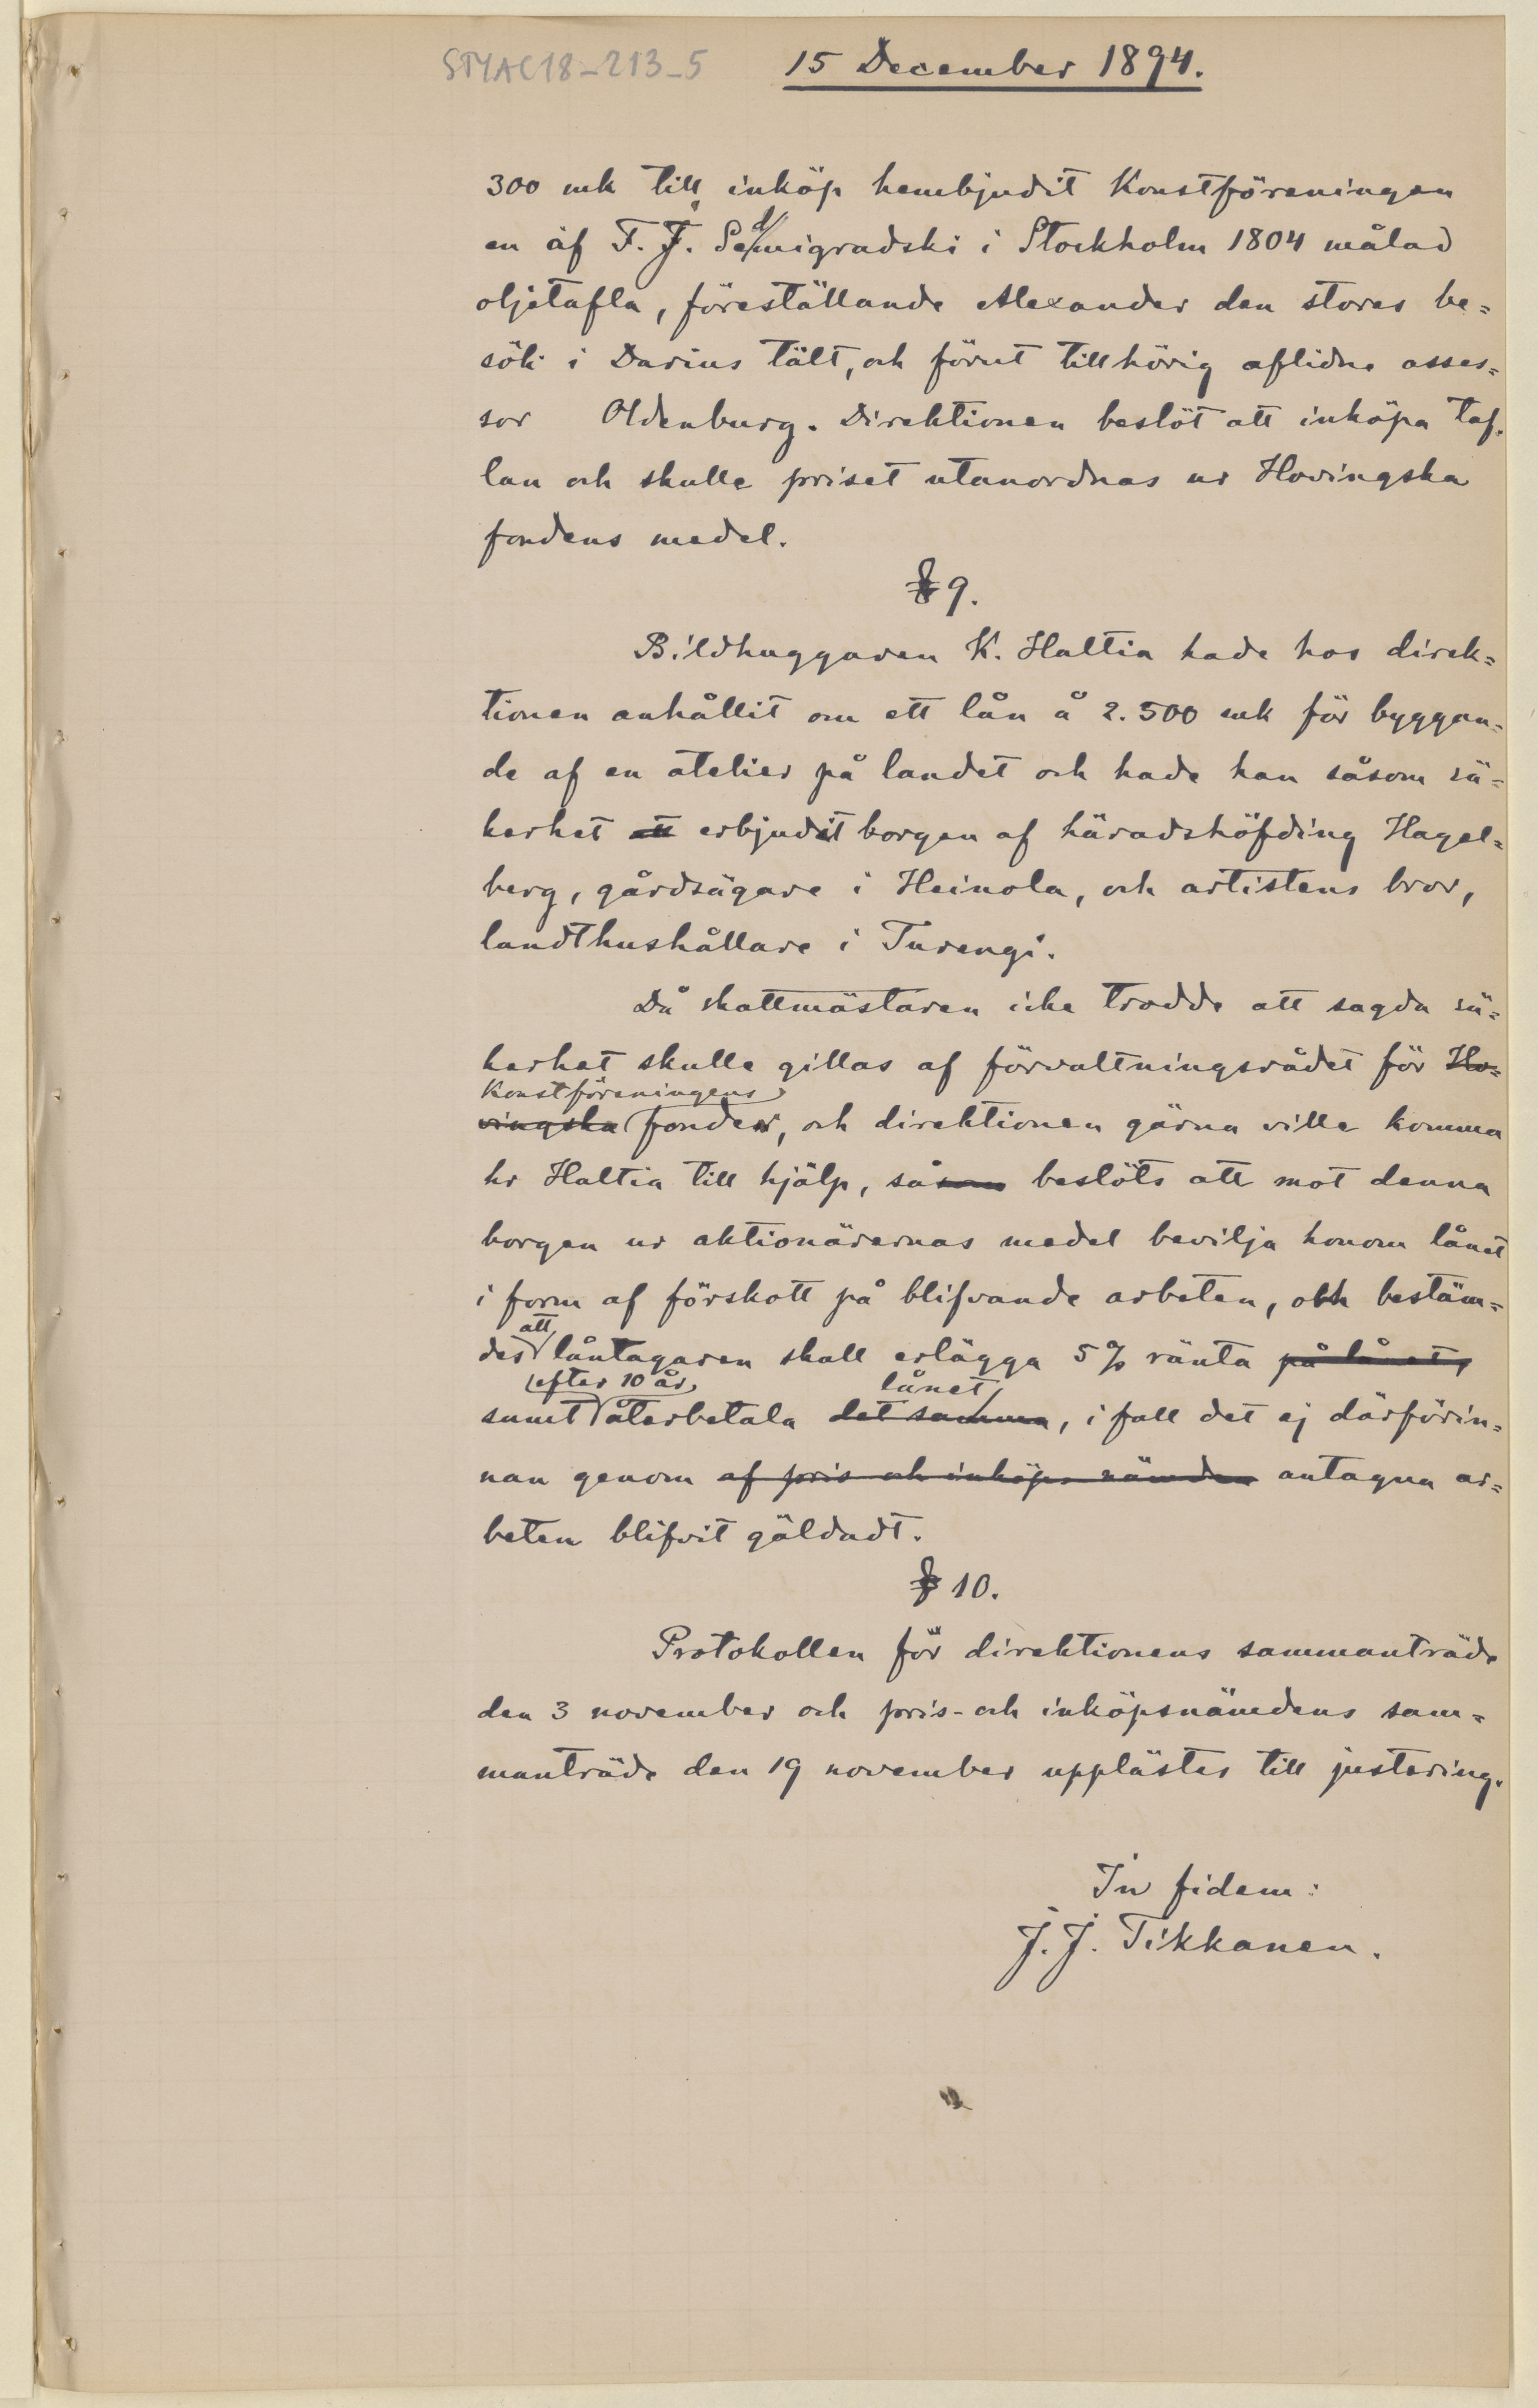 STYAC18-213-5
15 December 1894.
300 mk till inköp hembjudit Konstföreningen
en af F. J. Semigradski i Stockholm 1804 målad
oljetafla, föreställande Alexander den stores be=
sök i Darius tält, och förut tillhörig aflidne asses=
sor Oldenburg. Direktionen beslöt att inköpa taf-
lan och skulle priset utanordnas ur Hovingska
fondens medel.
§ 9.
Bildhuggaren K. Haltia hade hos direk=
tionen anhållit om ett lån å 2.500 mk för byggan=
de af en atelier på landet och hade han såsom sä=
kerhet att erbjudit borgen af häradshöfding Hagel=
berg, gårdsägare i Heinola, och artistens bror,
landthushållare i Turengi.
Då skattmästaren icke trodde att sagda sä=
kerhet skulle gillas af förvaltningsrådet för Ho=
Konstföreningens
vingska fonder, och direktionen gärna ville komma
hr Haltia till hjälp, såsom beslöts att mot denna
borgen ur aktionärernas medel bevilja honom lånet
i form af förskott på blifvande arbeten, och bestäm=
att
des låntagaren skall erlägga 5 % ränta på lånet,
efter 10 år lånet
samt återbetala det samma, i fall det ej därförin=
nan genom af pris och inköps nämden antagna ar=
beten blifvit gäldadt.
§ 10.
Protokollen för direktionens sammanträde
den 3 november och pris- och inköpsnämdens sam=
manträde den 19 november upplästes till justering.
In fidem:
J. J. Tikkanen.